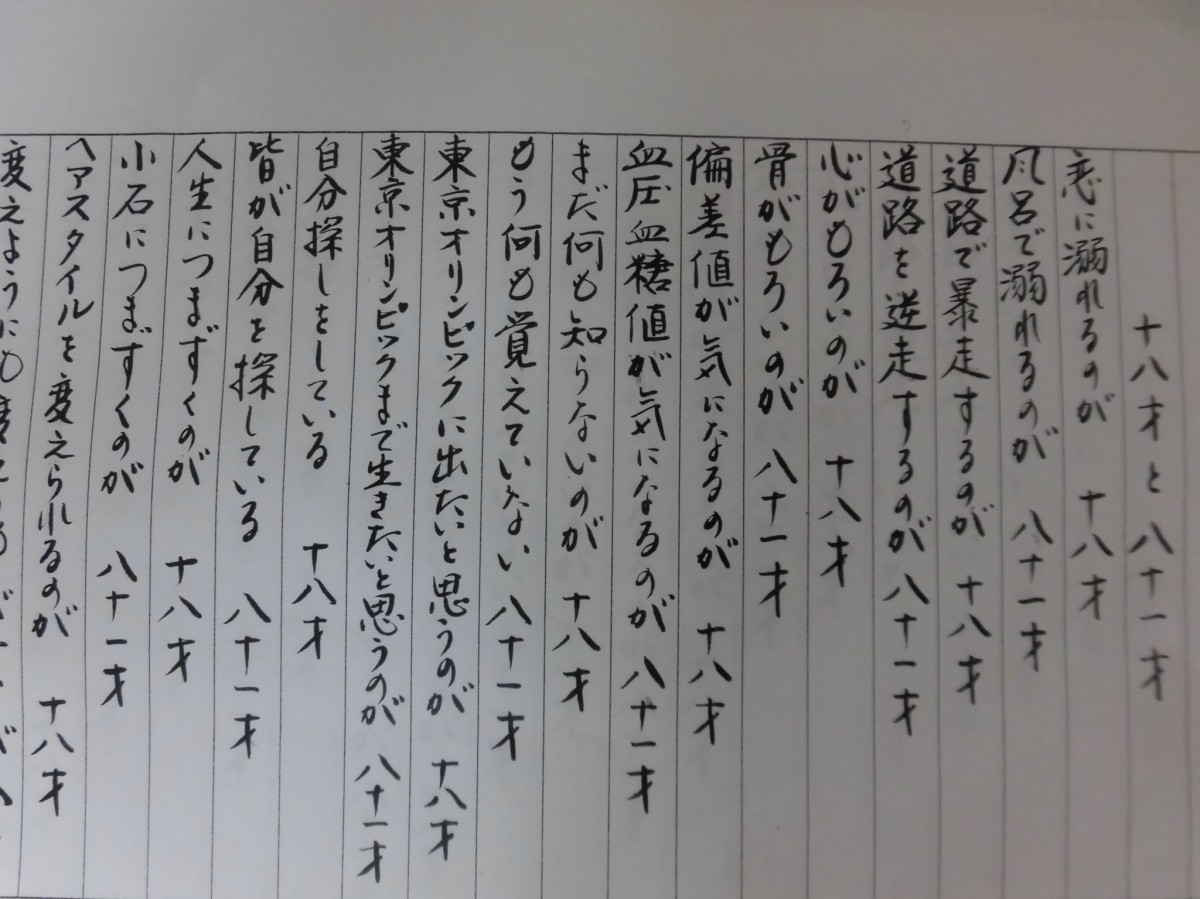 十八才と八十一才
恋に溺れるのが 十八才
風呂で溺れるのが 八十一才
道路で暴走するのが 十八才
道路を逆走するのが 八十一才
心がもろいのが 十八才
骨がもろいのが 八十一才
偏差値が気になるのが 十八才
血圧血糖値が気になるのが 八十一才
まだ何も知らないのが 十八才
もう何も覚えていない 八十一才
東京オリンピックに出たいと思うのが 十八才
東京オリンピックまで生きたいと思うのが 八十一才
自分探しをしている 十八才
皆が自分を探している 八十一才
人生につまずくのが 十八才
小石につまずくのが 八十一才
ヘアスタイルを変えられるのが 十八才
変えようにも